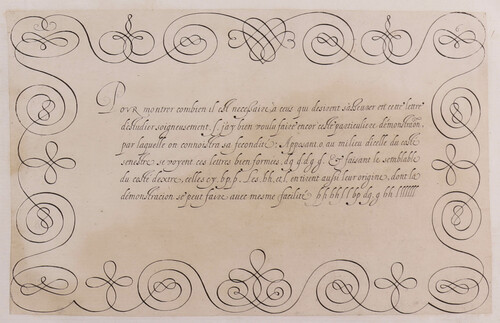 POVR montrer combien il est necessaire a ceus qui desirent s'adresser en ceste letre
d'estudier soigneusement. J'ay bien voulu faire encor ceste particuliere demonstration,
par laquelle on connoistra sa fecondité: Apposant o, au milieu d'icelle du costé
senestre, se voyent ces lettres bien formées, dq d.dg g. & faisant le semblable
du costé dextre, celles cy. bp. þ. Les .bh, et l. en tirent aussi leur origine, dont la
démonstration se peut faire avec mesme facilité bh bh l l bp dg. g bh l l l l l l l